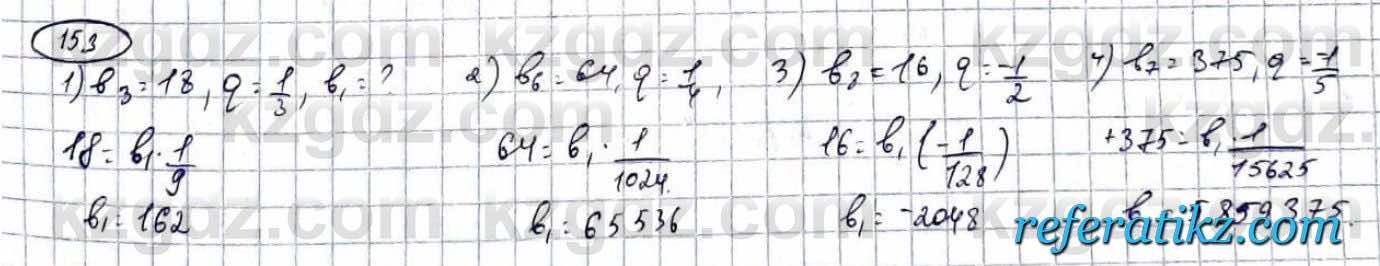 153
1) в₃ = 18, q = 1/3, в₁ = ?
18 = в₁ · 1/9
в₁ = 162
2) в₆ = 64, q = 1/4,
64 = в₁ · 1/1024
в₁ = 65536
3) в₈ = 16, q = -1/2
16 = в₁ (-1/128)
в₁ = -2048
4) в₇ = 375, q = -1/5
+375 = в₁ · 1/15625
5859375.
kzgdz.com
referatikz.com